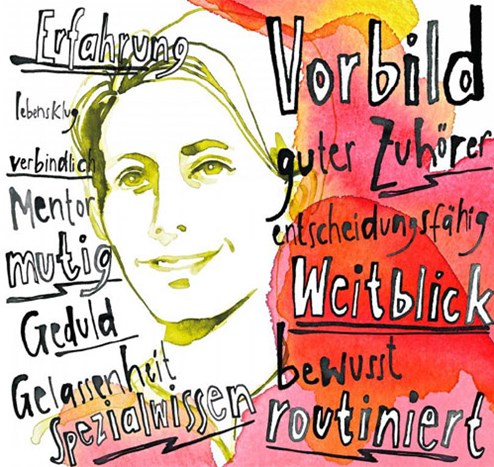 Erfahrung
lebensklug
verbindlich
Mentor
mutig
Geduld
Gelassenheit
Spezialwissen
Vorbild
guter Zuhörer
entscheidungsfähig
Weitblick
bewusst
routiniert